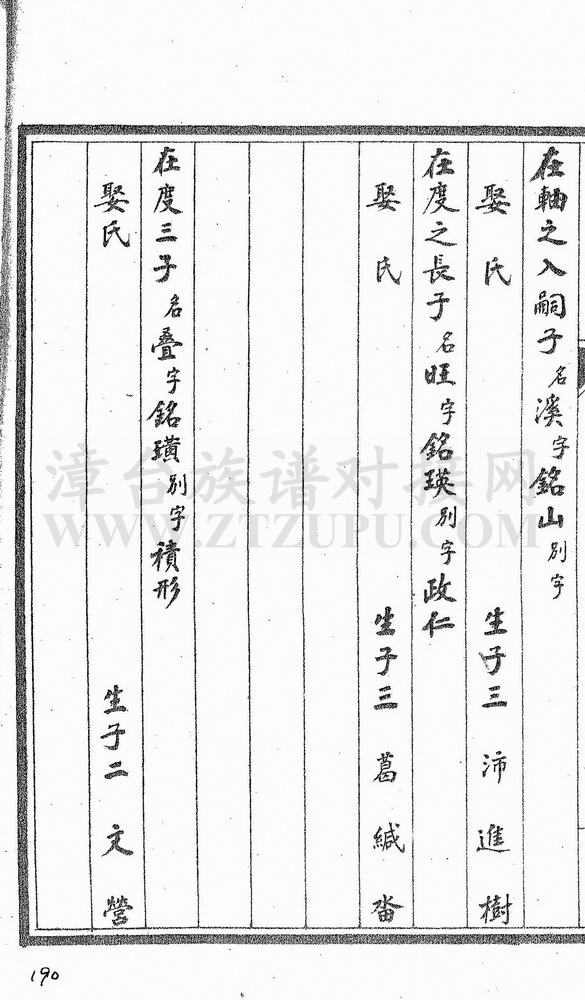 在軸之入嗣子名溪字銘山別字
娶氏 生子三 沛 進 樹
在度之長子名旺字銘瑛別字政仁
娶氏 生子三 葛 緘 畨
在度三子名疊字銘璜別字積形
娶氏 生子二 文 營
漳台族谱对接网
WWW.ZTZUPU.COM
190